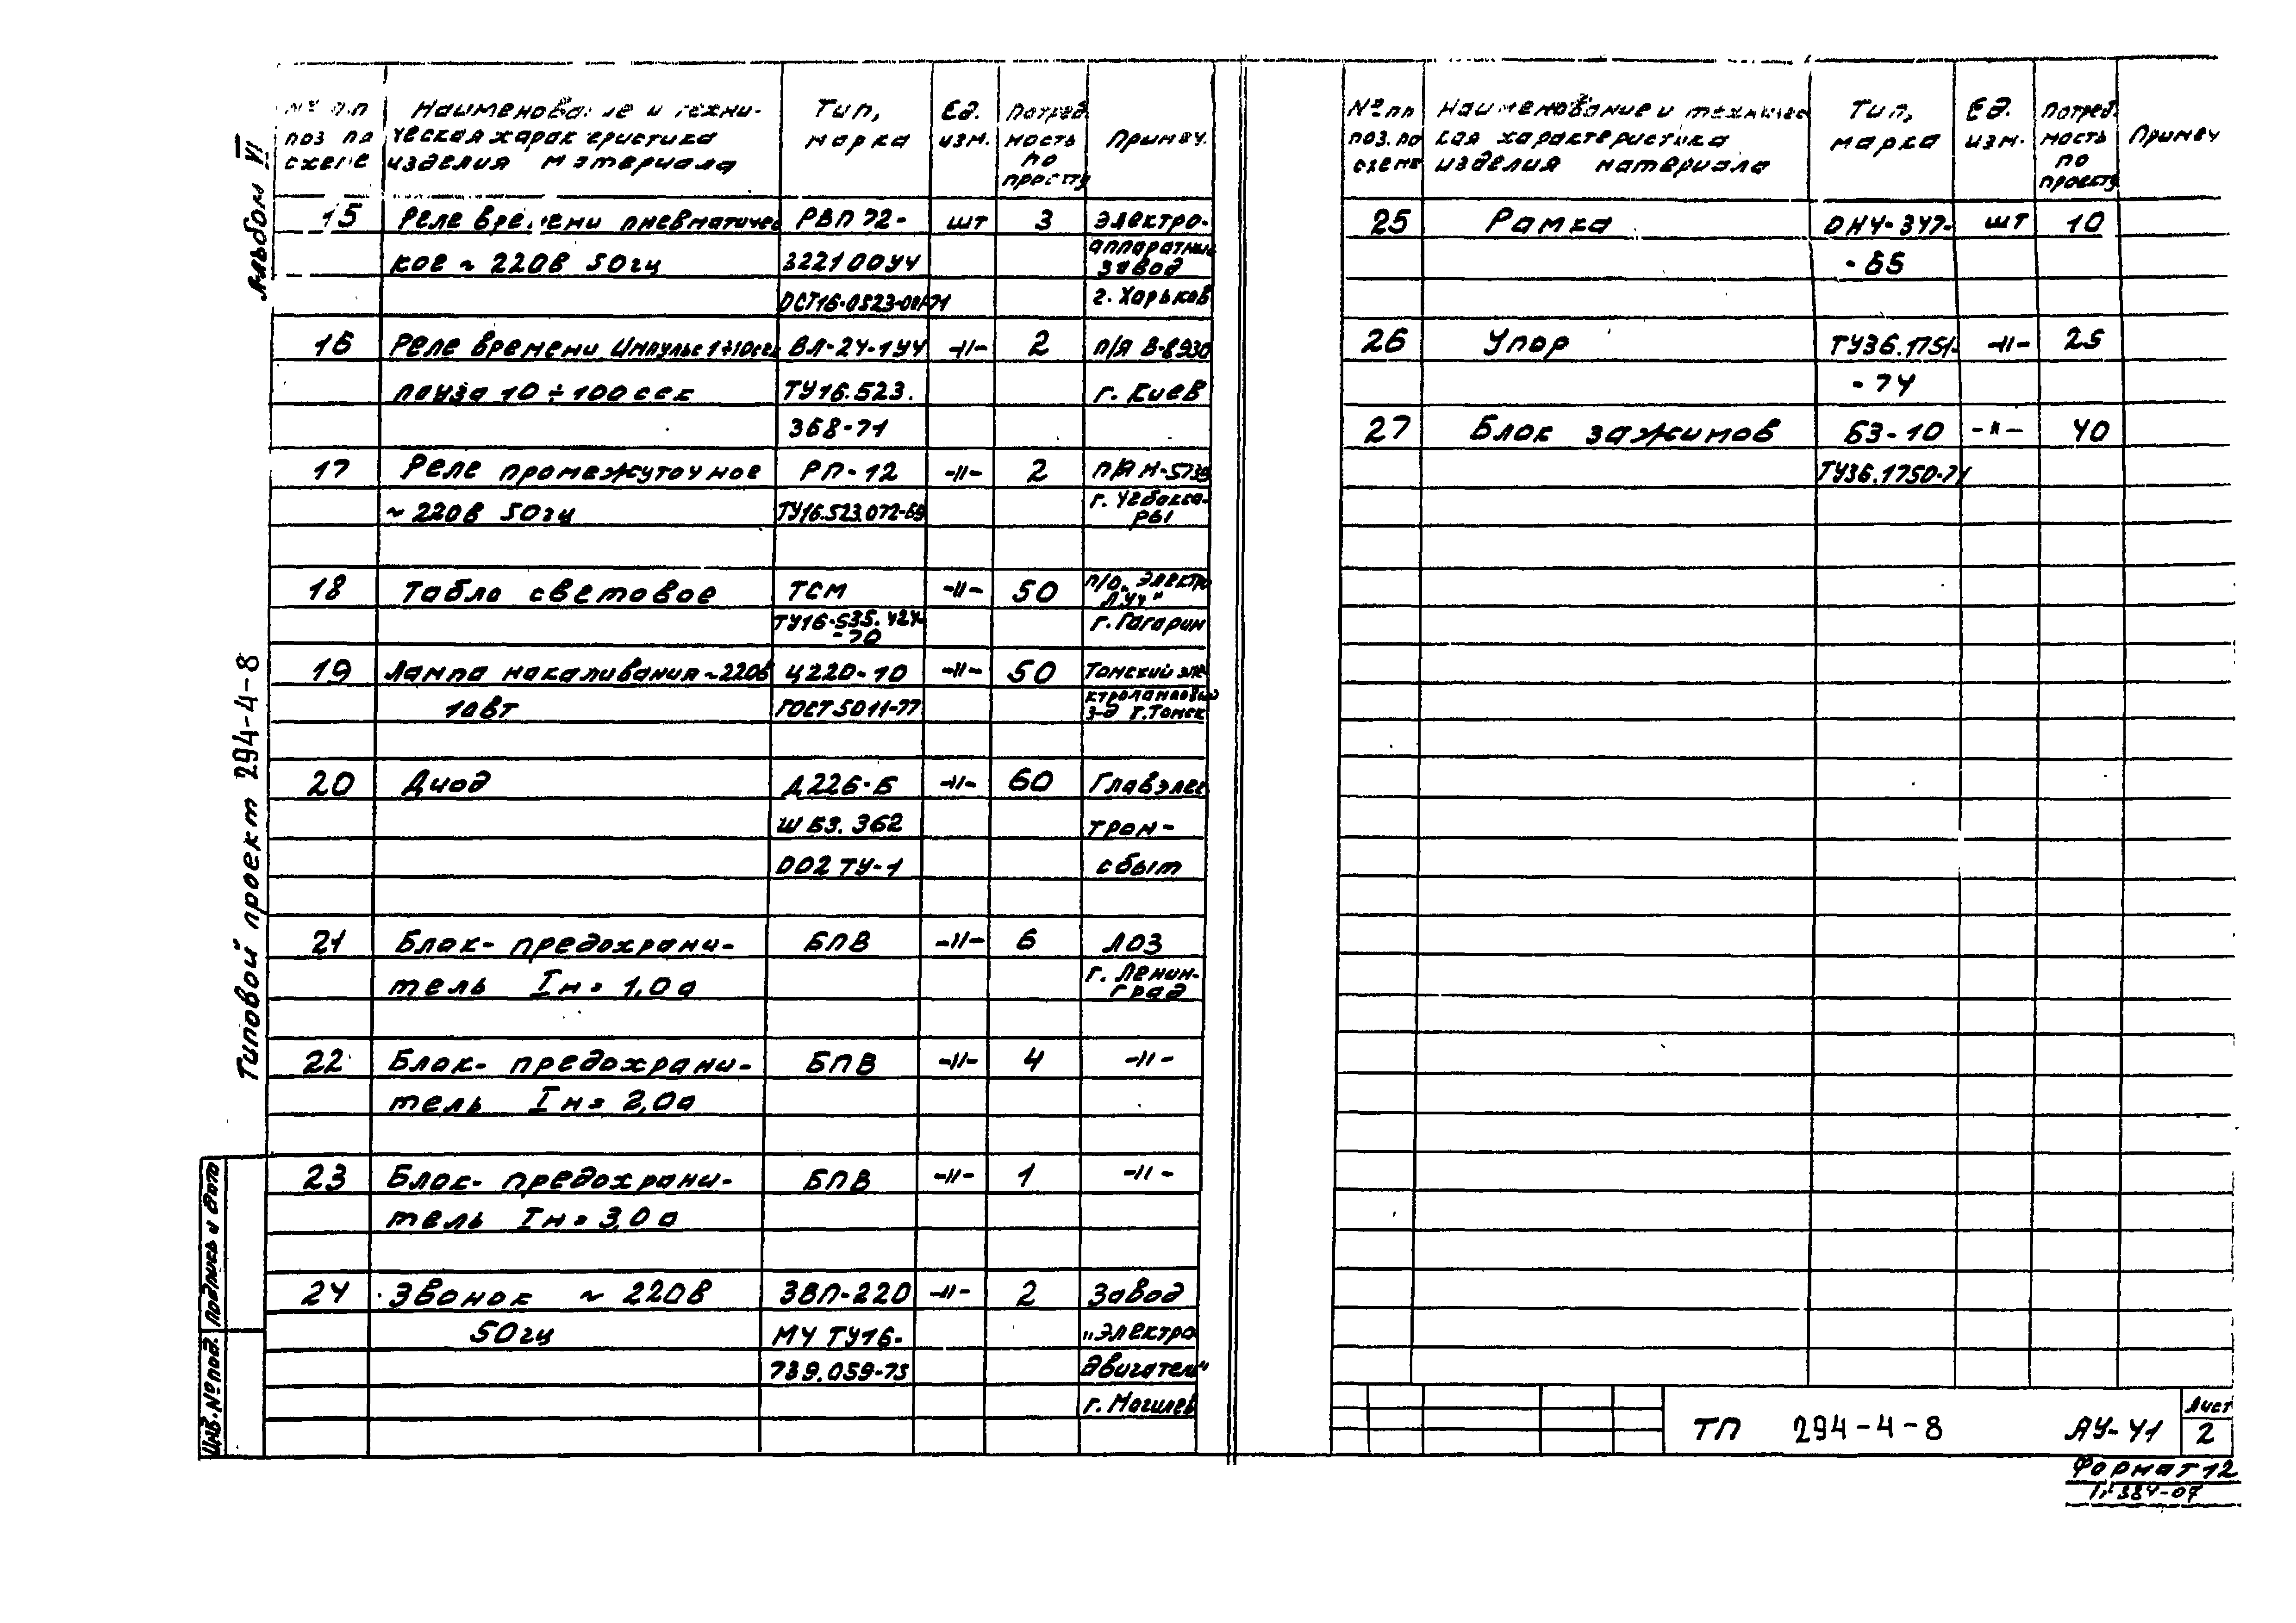 Альбом VI
Типовой проект 294-4-8
Подпись и дата
Инв. № под.
№ п.п поз по схеме | Наименование и техническая характеристика изделия материала | Тип, марка | Ед. изм. | Потребность по проекту | Примеч.
15 | Реле времени пневматичес | РВП 72- | шт | 3 | Электро-
кое ~ 220в 50гц | 322100У4 | аппаратный завод
ОСТ16-0523-001-71 | г. Харьков
16 | Реле времени Импульс 1÷10сек | ВЛ-24-1У4 | -"- | 2 | п/я В-8930
пауза 10÷100сек | ТУ16.523. | г. Киев
368-71
17 | Реле промежуточное | РП-12 | -"- | 2 | п/я М-5739
~ 220в 50гц | ТУ16.523.072-69 | г. Чебокса-
ры
18 | Табло световое | ТСМ | -"- | 50 | п/о „Электро
луч"
ТУ16-535.424- | г. Гагарин
-70
19 | Лампа накаливания ~220в | Ц220-10 | -"- | 50 | Томский эле
10вт | ГОСТ 5011-77 | ктроламповый
з-д г.Томск
20 | Диод | Д226-Б | -"- | 60 | Главэлек
ЩБ3.362 | трон-
002 ТУ-1 | сбыт
21 | Блок-предохрани- | БПВ | -"- | 6 | ЛОЗ
тель Iн=1,0а | г. Ленин-
град
22 | Блок-предохрани- | БПВ | -"- | 4 | -"-
тель Iн=2,0а
23 | Блок-предохрани- | БПВ | -"- | 1 | -"-
тель Iн=3,0а
24 | Звонок ~ 220в | ЗВП-220 | -"- | 2 | Завод
50гц | М4 ТУ16- | „Электро
739.059-75 | двигатель"
г. Могилев
№ пп поз. по схеме | Наименование и техничес кая характеристика изделия материала | Тип, марка | Ед. изм. | Потребность по проекту | Примеч
25 | Рамка | ОН4-347- | шт | 10
-65
26 | Упор | ТУ36.1751- | -"- | 25
-74
27 | Блок зажимов | БЗ-10 | -"- | 40
ТУ36.1750-74
ТП 294-4-8 АУ-41
Лист
2
Формат 12